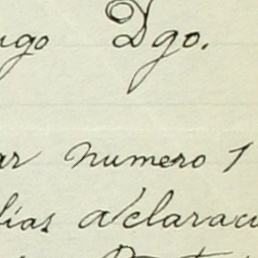 ugo Dgo.
ar numero 1
lias aclaraci